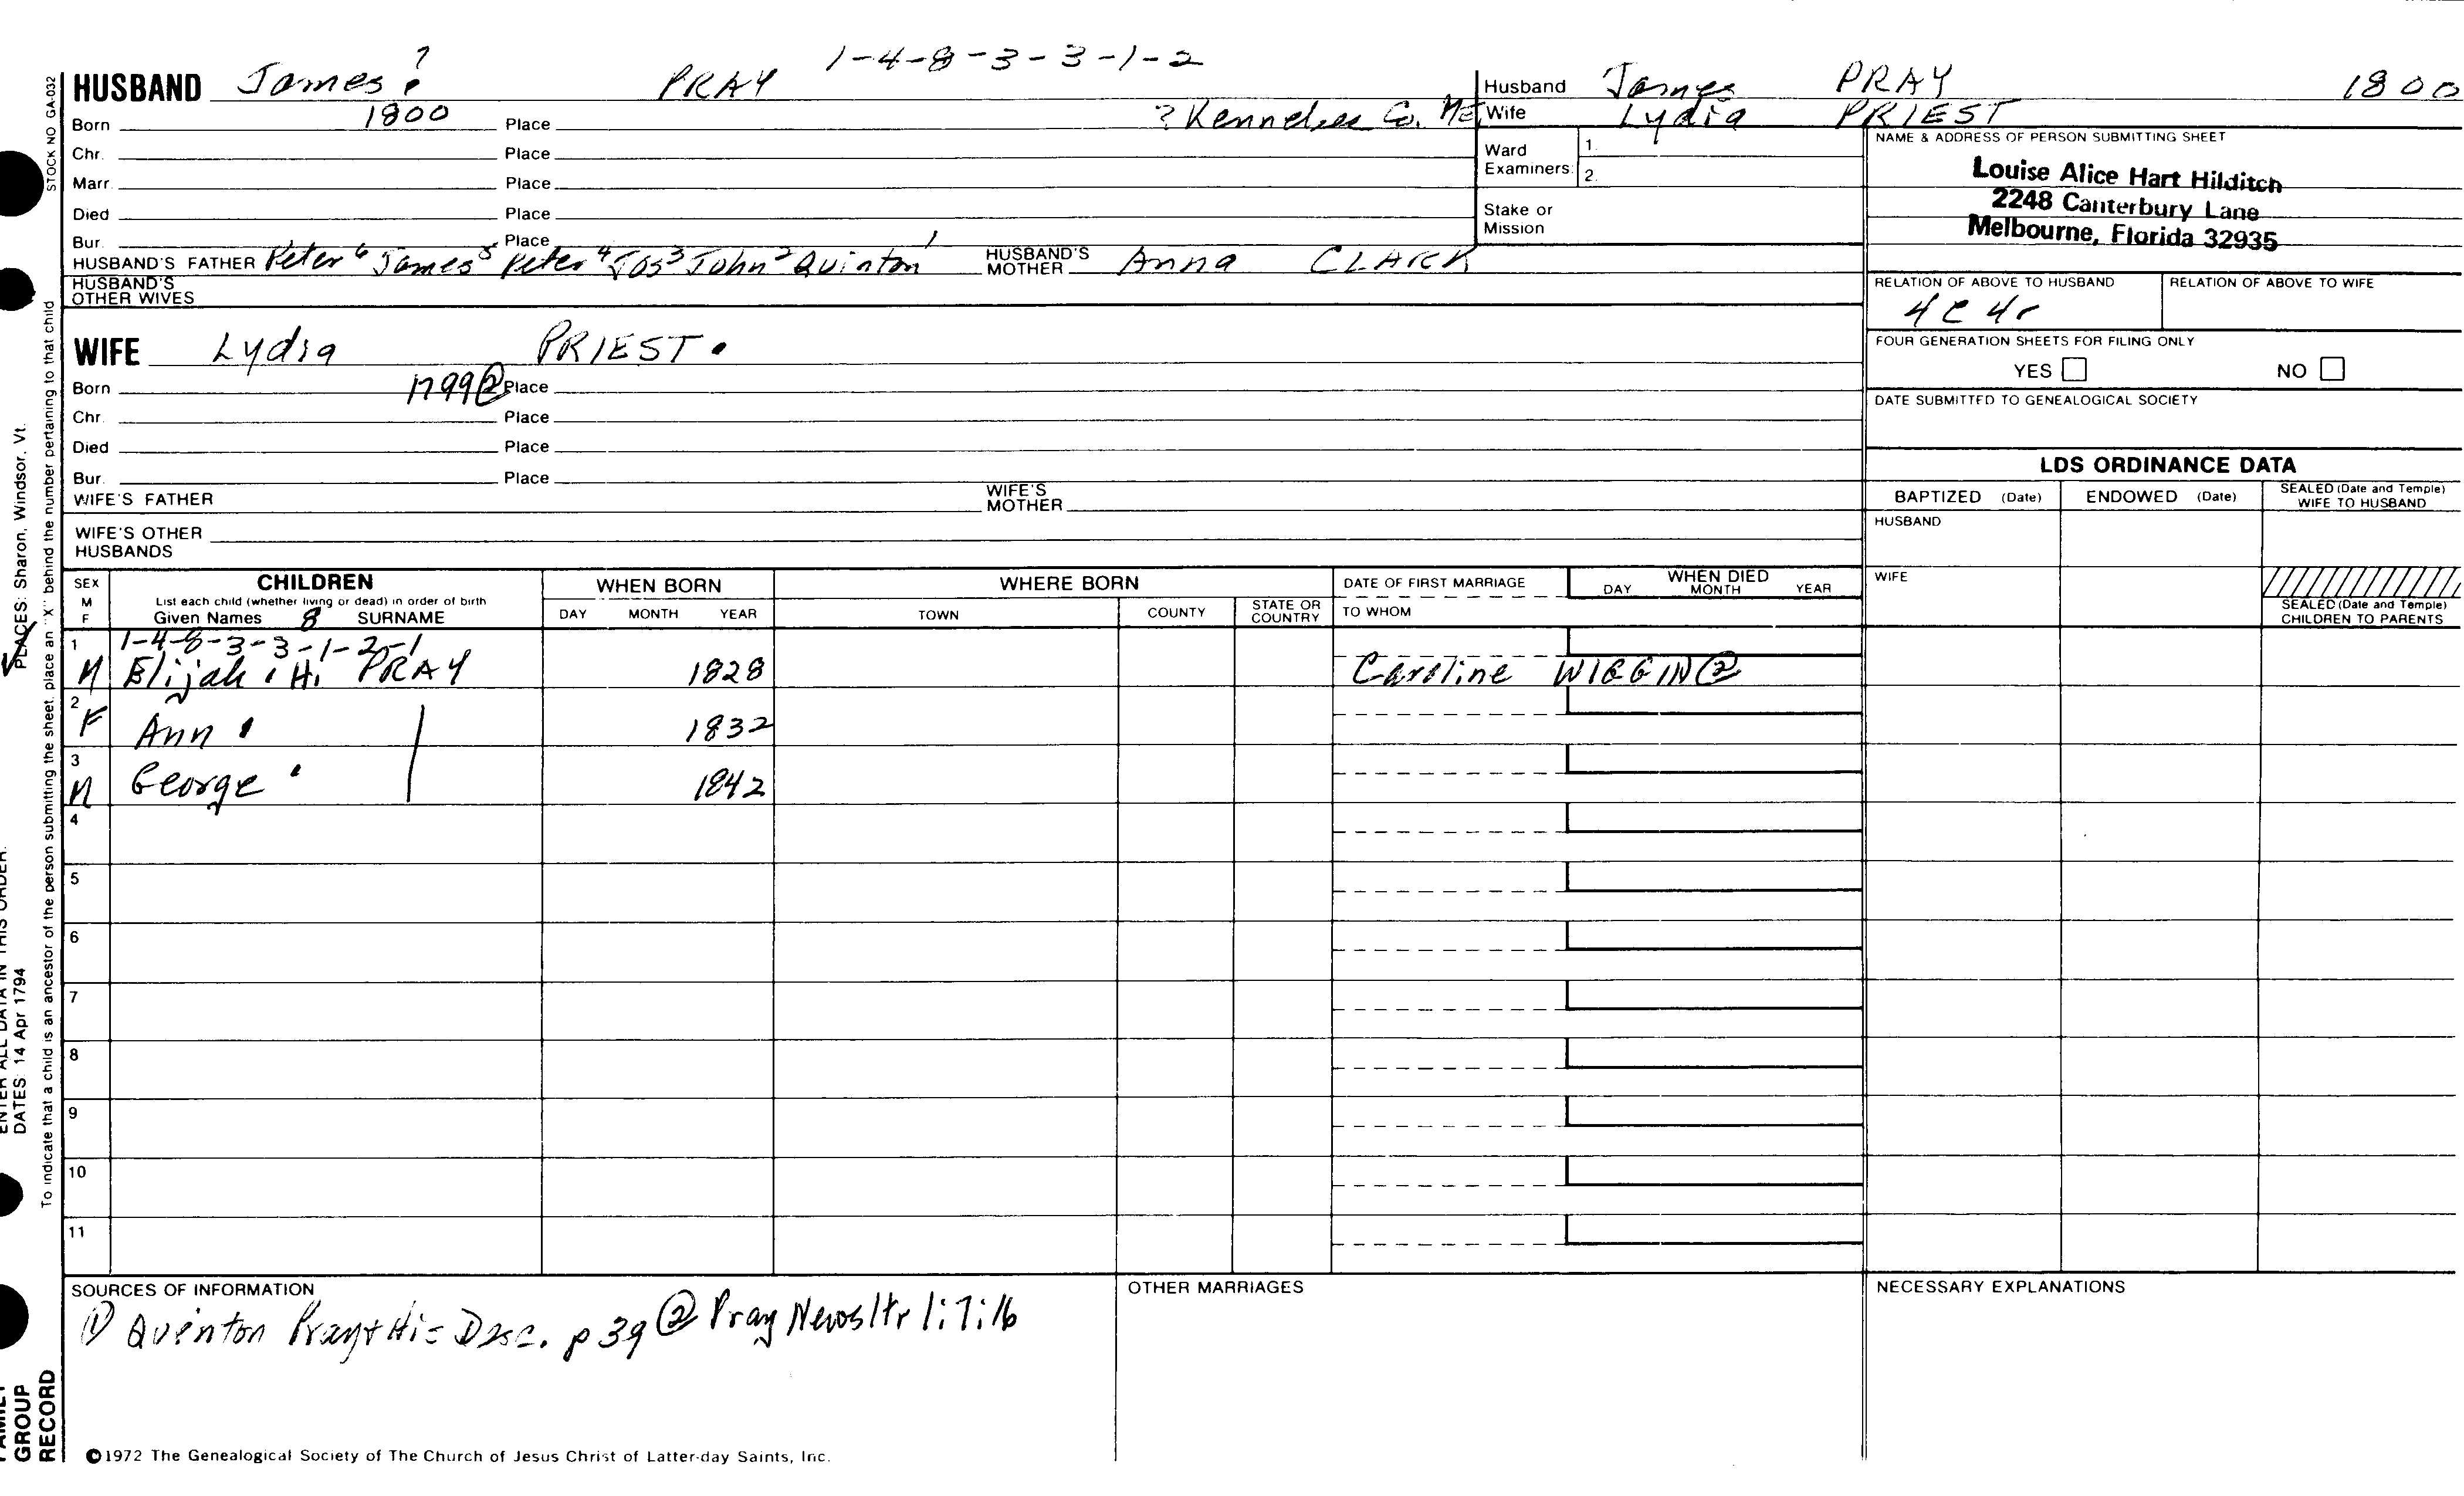 1-4-8-3-3-1-2
HUSBAND James ? PRAY
Born 1800 Place ? Kennebec Co. ME
Chr. Place
Marr. Place
Died Place
Bur. Place
HUSBAND'S FATHER Peter 6 James 5 Peter 4 Jos 3 John 2 Quinton 1 HUSBAND'S MOTHER Anna CLARK
HUSBAND'S OTHER WIVES
Husband James PRAY 1800
Wife Lydia PRIEST
Ward Examiners: 1.
2.
Stake or Mission
NAME & ADDRESS OF PERSON SUBMITTING SHEET
Louise Alice Hart Hilditch
2248 Canterbury Lane
Melbourne, Florida 32935
RELATION OF ABOVE TO HUSBAND RELATION OF ABOVE TO WIFE
4C 4r
FOUR GENERATION SHEETS FOR FILING ONLY
YES NO
DATE SUBMITTED TO GENEALOGICAL SOCIETY
WIFE Lydia PRIEST.
Born 1799 ② Place
Chr. Place
Died Place
Bur. Place
WIFE'S FATHER WIFE'S MOTHER
WIFE'S OTHER HUSBANDS
LDS ORDINANCE DATA
BAPTIZED (Date) ENDOWED (Date) SEALED (Date and Temple) WIFE TO HUSBAND
HUSBAND
WIFE
SEALED (Date and Temple) CHILDREN TO PARENTS
SEX M F CHILDREN WHEN BORN WHERE BORN DATE OF FIRST MARRIAGE WHEN DIED
List each child (whether living or dead) in order of birth
Given Names 8 SURNAME DAY MONTH YEAR TOWN COUNTY STATE OR COUNTRY TO WHOM DAY MONTH YEAR
1 1-4-8-3-3-1-2-1
M Elijah H. PRAY 1828 Caroline WIGGIN ②
2 F Ann 1832
3 M George 1842
4
5
6
7
8
9
10
11
SOURCES OF INFORMATION
① Quinton Pray + His Desc. p 39 ② Pray Newsltr 1:7:16
OTHER MARRIAGES
NECESSARY EXPLANATIONS
©1972 The Genealogical Society of The Church of Jesus Christ of Latter-day Saints, Inc.
STOCK NO GA-032
To indicate that a child is an ancestor of the person submitting the sheet, place an "X" behind the number pertaining to that child
PLACES: Sharon, Windsor, Vt.
ENTER ALL DATA IN THIS ORDER:
DATES: 14 Apr 1794
FAMILY GROUP RECORD